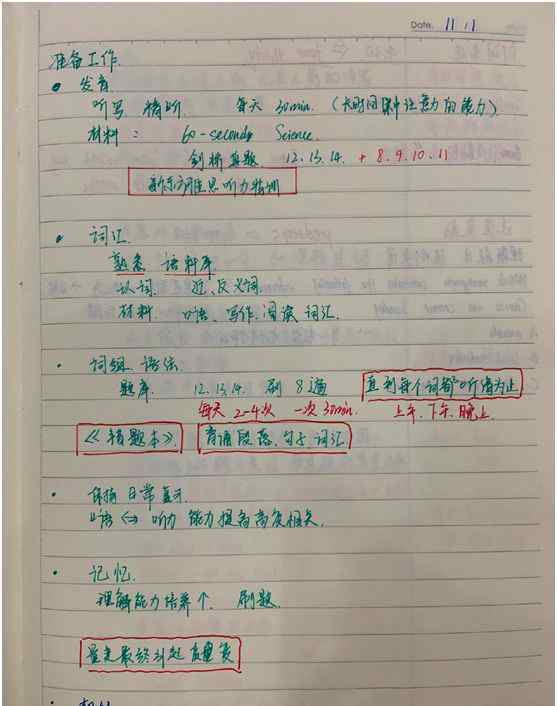 Date. 11.1
准备工作.
发音.
听写 精听. 每天 30min. (长时间集中注意力的能力).
材料: 60-seconds Science.
剑桥真题 12.13.14. + 8.9.10.11
新东方雅思听力特训
词汇.
熟悉 语料库
认词. 近、反义词.
材料. 口语、写作、阅读 词汇.
词组. 语法
题库. 12.13.14. 刷 8遍 直到每个词都听清为止
每天 2-4次 一次30min. 上午、下午、晚上.
《错题本》. 背诵段落、句子、词汇.
保持 日常复习.
口语 ⇔ 听力 能力提高高度相关.
记忆.
理解能力培养 刷题.
量变最终引起质变